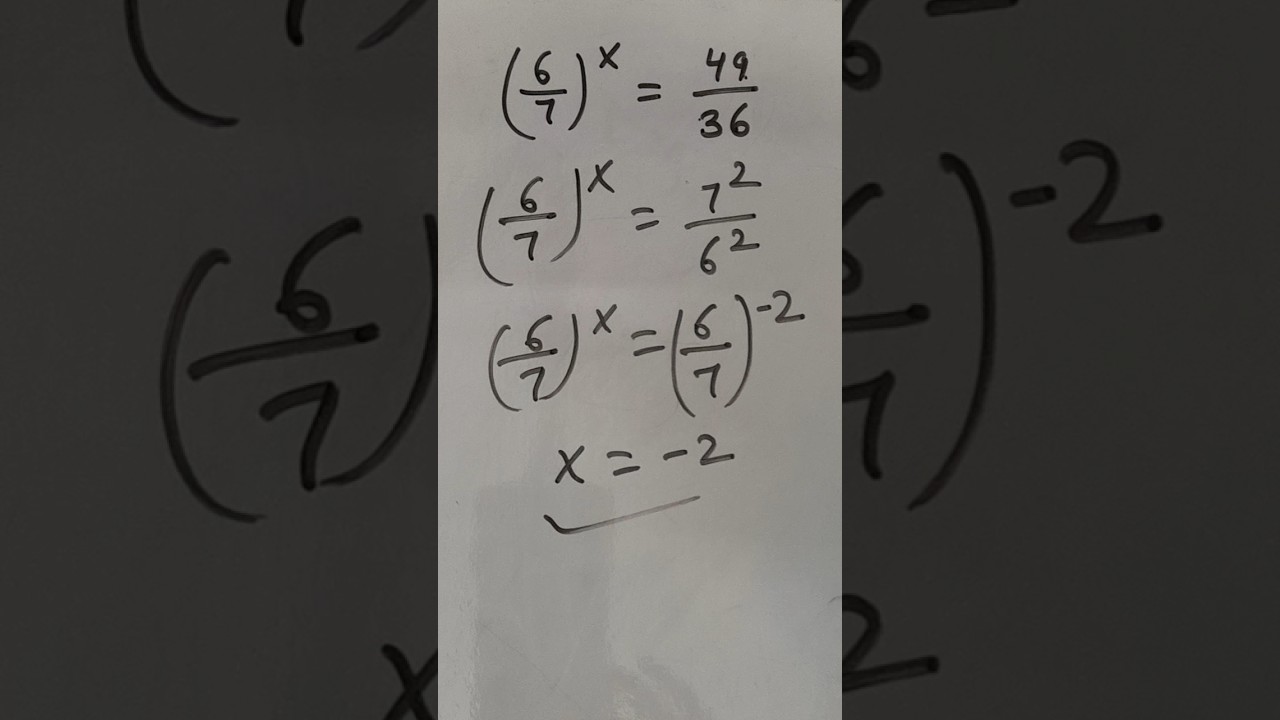 (6/7)^x = 49/36
(6/7)^x = 7^2/6^2
(6/7)^x = (6/7)^-2
x = -2